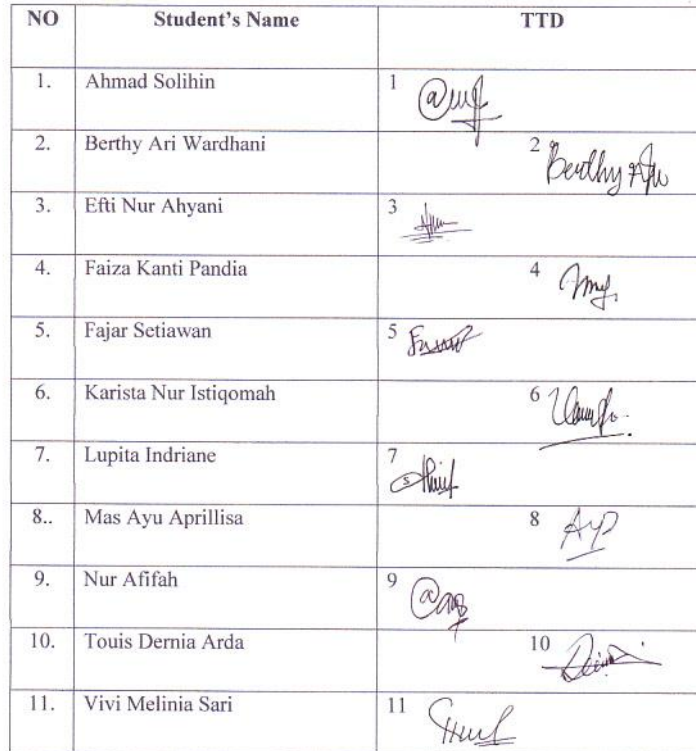 NO Student's Name TTD
1. Ahmad Solihin 1
2. Berthy Ari Wardhani 2 Berthy
3. Efti Nur Ahyani 3
4. Faiza Kanti Pandia 4
5. Fajar Setiawan 5
6. Karista Nur Istiqomah 6
7. Lupita Indriane 7
8.. Mas Ayu Aprillisa 8
9. Nur Afifah 9
10. Touis Dernia Arda 10
11. Vivi Melinia Sari 11